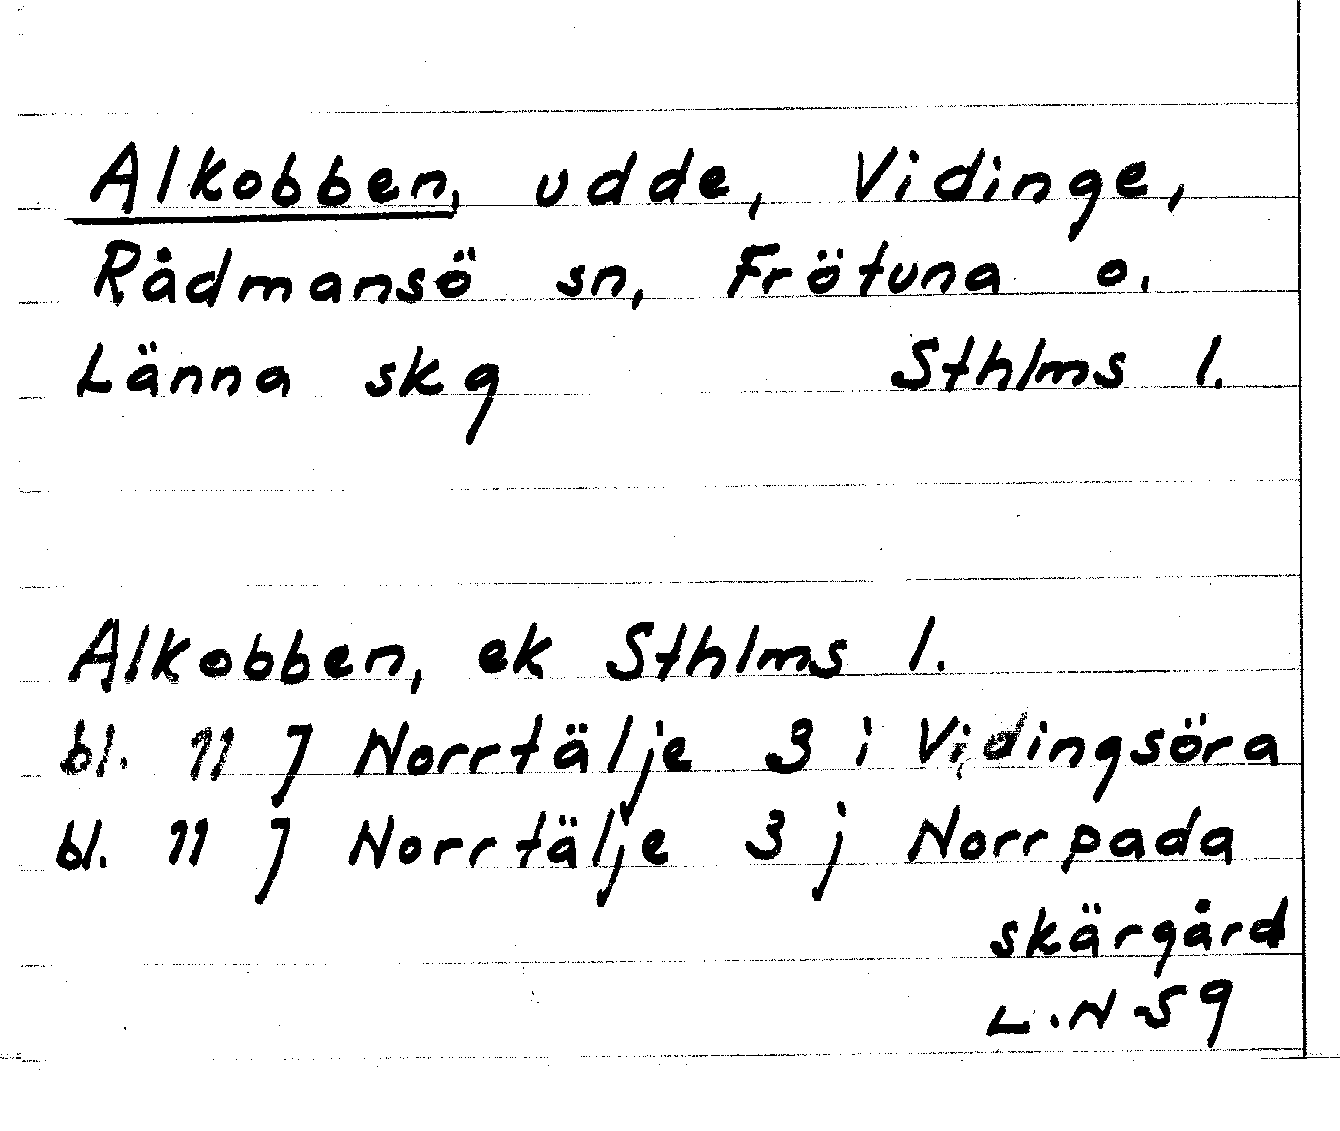 Alkobben, udde, Vidinge,
Rådmansö sn, Frötuna o.
Länna skg Sthlms l.
Alkobben, ek Sthlms l.
bl. 11 J Norrtälje 3 i Vidingsöra
bl. 11 J Norrtälje 3 j Norrpada
skärgård
L.N 59